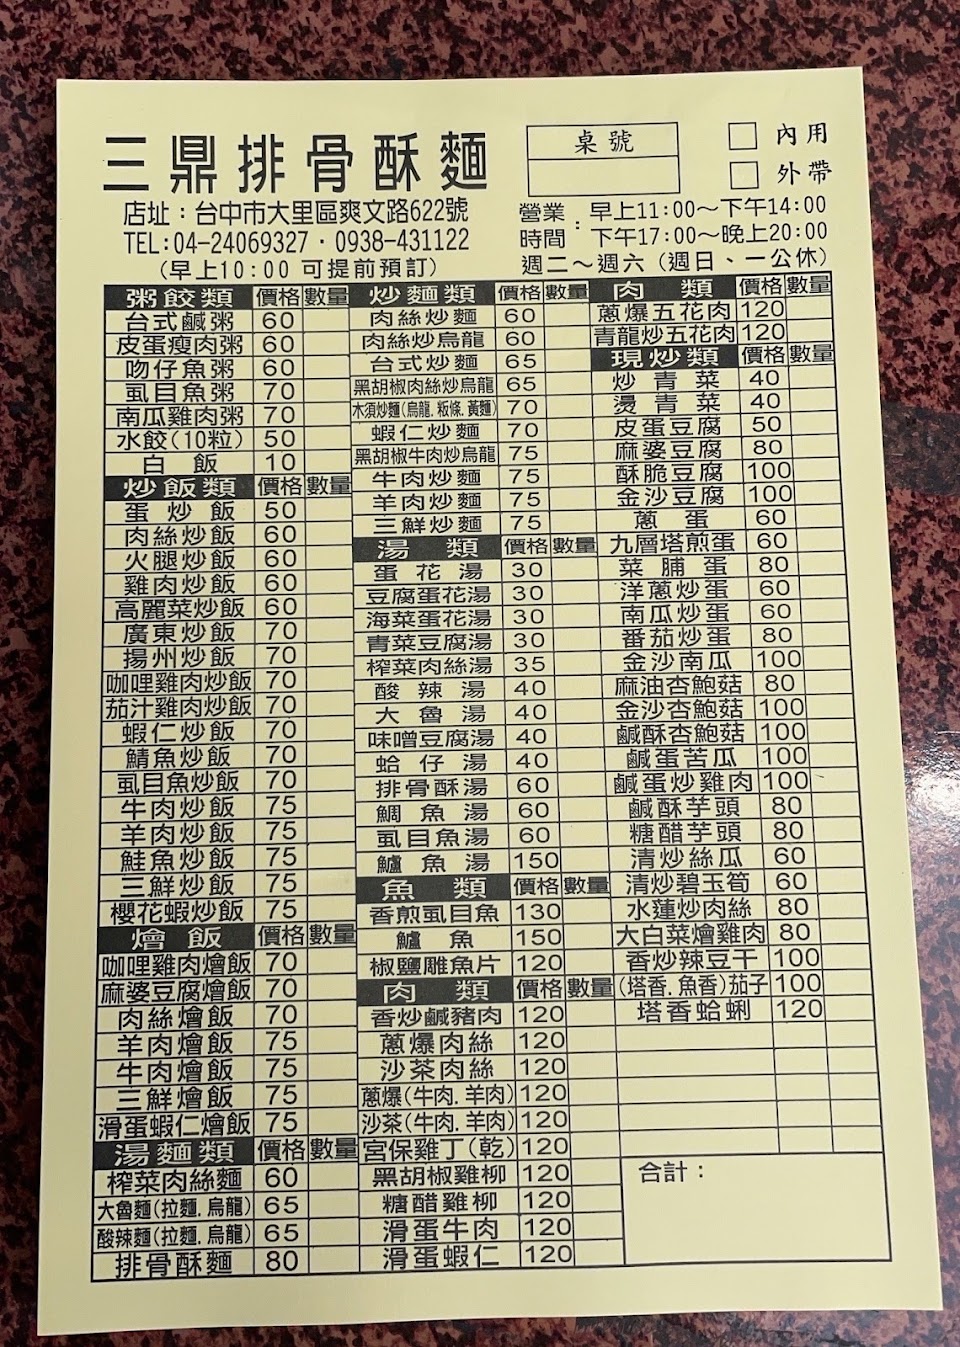 三鼎排骨酥麵
桌號
內用
外帶
店址：台中市大里區爽文路622號
TEL:04-24069327・0938-431122
(早上10:00 可提前預訂)
營業時間：早上11:00～下午14:00
下午17:00～晚上20:00
週二～週六 (週日、一公休)
粥餃類 價格 數量
台式鹹粥 60
皮蛋瘦肉粥 60
吻仔魚粥 60
虱目魚粥 70
南瓜雞肉粥 70
水餃(10粒) 50
白飯 10
炒飯類 價格 數量
蛋炒飯 50
肉絲炒飯 60
火腿炒飯 60
雞肉炒飯 60
高麗菜炒飯 60
廣東炒飯 70
揚州炒飯 70
咖哩雞肉炒飯 70
茄汁雞肉炒飯 70
蝦仁炒飯 70
鯖魚炒飯 70
虱目魚炒飯 70
牛肉炒飯 75
羊肉炒飯 75
鮭魚炒飯 75
三鮮炒飯 75
櫻花蝦炒飯 75
燴飯 價格 數量
咖哩雞肉燴飯 70
麻婆豆腐燴飯 70
肉絲燴飯 70
羊肉燴飯 75
牛肉燴飯 75
三鮮燴飯 75
滑蛋蝦仁燴飯 75
湯麵類 價格 數量
榨菜肉絲麵 60
大魯麵(拉麵.烏龍) 65
酸辣麵(拉麵.烏龍) 65
排骨酥麵 80
炒麵類 價格 數量
肉絲炒麵 60
肉絲炒烏龍 60
台式炒麵 65
黑胡椒肉絲炒烏龍 65
木須炒麵(烏龍.粄條.黃麵) 70
蝦仁炒麵 70
黑胡椒牛肉炒烏龍 75
牛肉炒麵 75
羊肉炒麵 75
三鮮炒麵 75
湯類 價格 數量
蛋花湯 30
豆腐蛋花湯 30
海菜蛋花湯 30
青菜豆腐湯 30
榨菜肉絲湯 35
酸辣湯 40
大魯湯 40
味噌豆腐湯 40
蛤仔湯 40
排骨酥湯 60
鯛魚湯 60
虱目魚湯 60
鱸魚湯 150
魚類 價格 數量
香煎虱目魚 130
鱸魚 150
椒鹽雕魚片 120
肉類 價格 數量
香炒鹹豬肉 120
蔥爆肉絲 120
沙茶肉絲 120
蔥爆(牛肉.羊肉) 120
沙茶(牛肉.羊肉) 120
宮保雞丁(乾) 120
黑胡椒雞柳 120
糖醋雞柳 120
滑蛋牛肉 120
滑蛋蝦仁 120
肉類 價格 數量
蔥爆五花肉 120
青龍炒五花肉 120
現炒類 價格 數量
炒青菜 40
燙青菜 40
皮蛋豆腐 50
麻婆豆腐 80
酥脆豆腐 100
金沙豆腐 100
蔥蛋 60
九層塔煎蛋 60
菜脯蛋 80
洋蔥炒蛋 60
南瓜炒蛋 60
番茄炒蛋 80
金沙南瓜 100
麻油杏鮑菇 80
金沙杏鮑菇 100
鹹酥杏鮑菇 100
鹹蛋苦瓜 100
鹹蛋炒雞肉 100
鹹酥芋頭 80
糖醋芋頭 80
清炒絲瓜 60
清炒碧玉筍 60
水蓮炒肉絲 80
大白菜燴雞肉 80
香炒辣豆干 100
(塔香.魚香)茄子 100
塔香蛤蜊 120
合計：